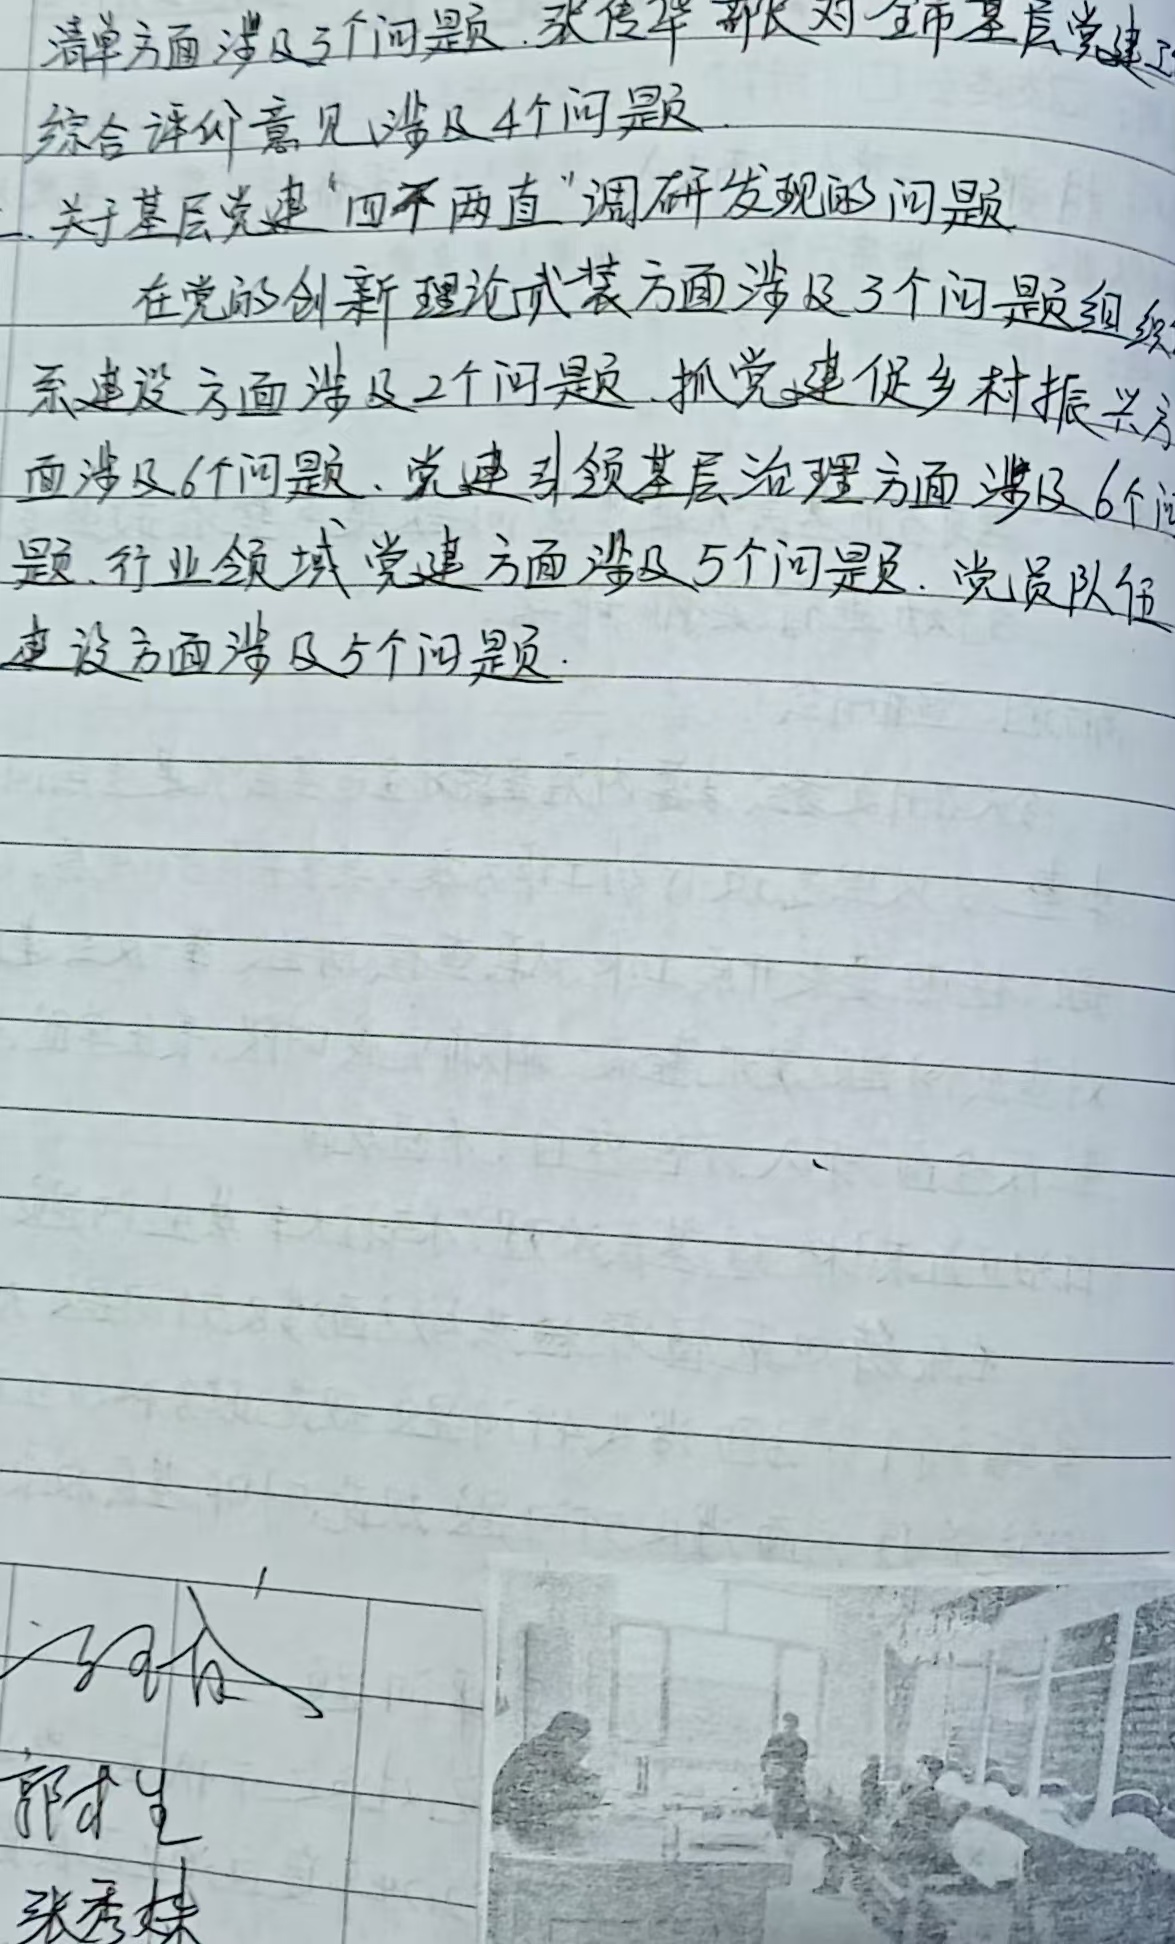 清单方面涉及3个问题.张传华部长对全市基层党建工
综合评价意见涉及4个问题.
二.关于基层党建“四不两直”调研发现的问题
在党的创新理论武装方面涉及3个问题组织
系建设方面涉及2个问题.抓党建促乡村振兴方
面涉及6个问题、党建引领基层治理方面涉及6个问
题.行业领域党建方面涉及5个问题.党员队伍
建设方面涉及5个问题.
郭才生
张秀妹